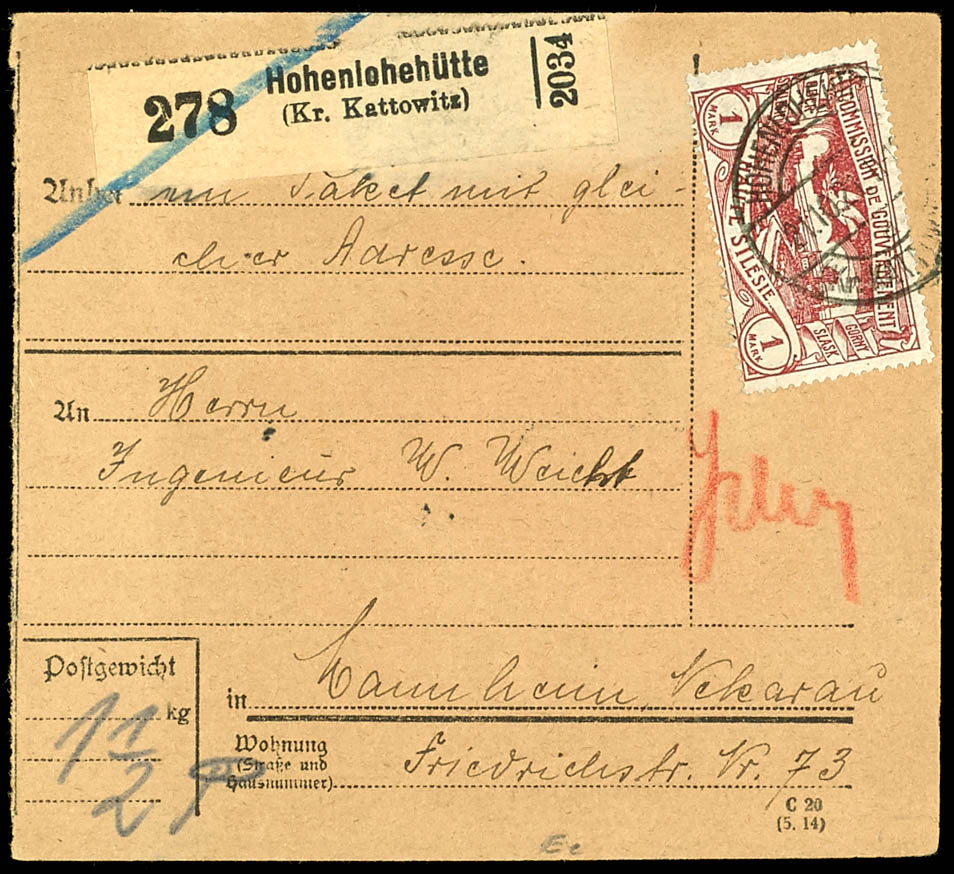 278 Hohenlohehütte 2034
(Kr. Kattowitz)
ein Paket mit glei-
cher Adresse.
An Herrn
Ingenieur W. Weicht
Postgewicht
kg
11
2
in Mannheim, Neckarau
Wohnung
(Straße und
Hausnummer)
Friedrichstr. Nr. 73
C 20
(5. 14)
1
MARK
COMMISSION DE GOUVERNEMENT
HAUTE SILESIE
GORNY
SLASK
1
MARK